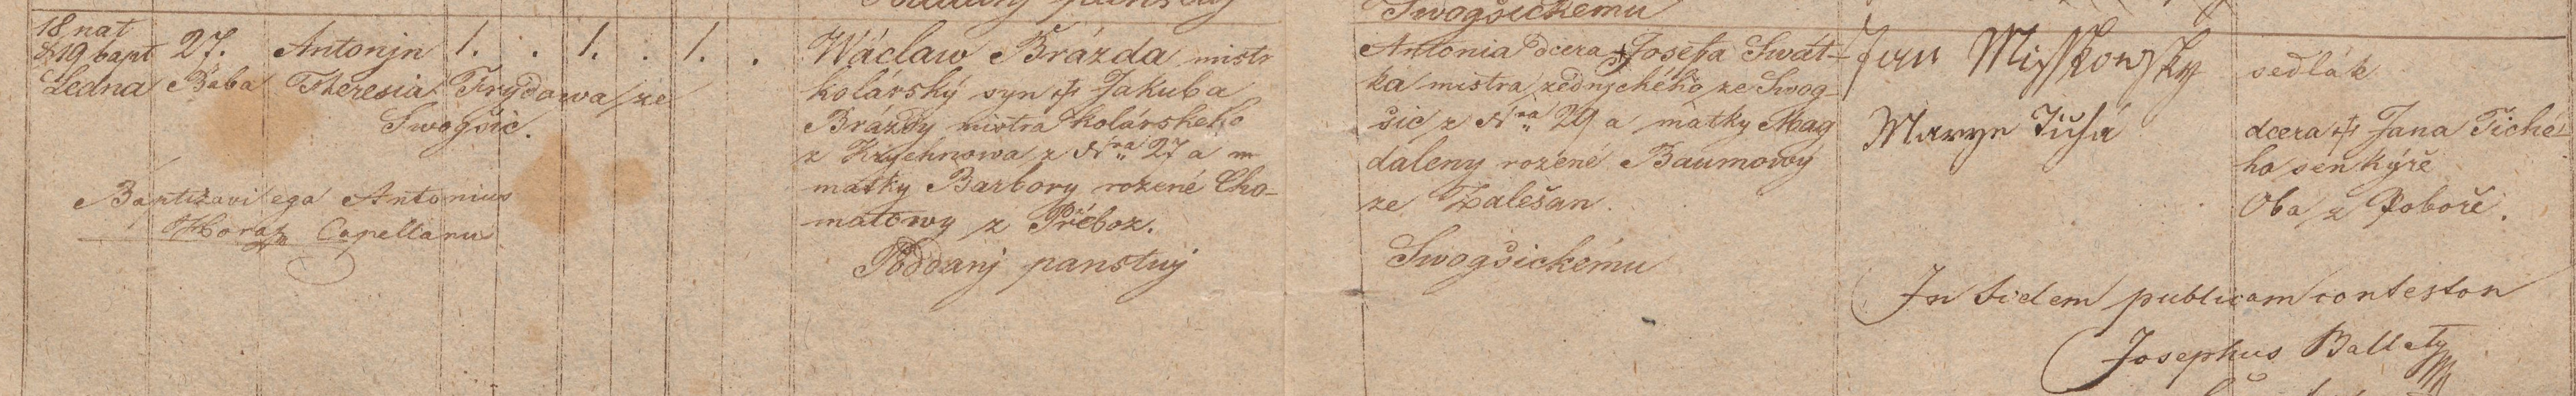 Swogšickemu
18 nat
& 19 bapt
Ledna
27. Antonjn 1. . 1. . 1. .
Bába Theresia Frýdowa ze
Swogšic.
Baptizavi ego Antonius
Capellanus
Wáclaw Brázda mistr
kolářský syn † Jakuba
Brázdy mistra kolárskeho
z Krychnowa z Nra 27 a m
matky Barbory rozené Cho-
matowy z Přeboz.
Poddanj panstwj
Antonia dcera † Josefa Swát-
ka mistra zednjckého ze Swog-
šic z Nra 29 a matky Mag
daleny rozené Baumowy
ze Zalešan.
Swogšickému
Jan Misskowsky
Marye Tichá
sedlák
dcera † Jana Tiché-
ho šenkýře
Oba z Pobоře.
In fidem publicam contestor
Josephus